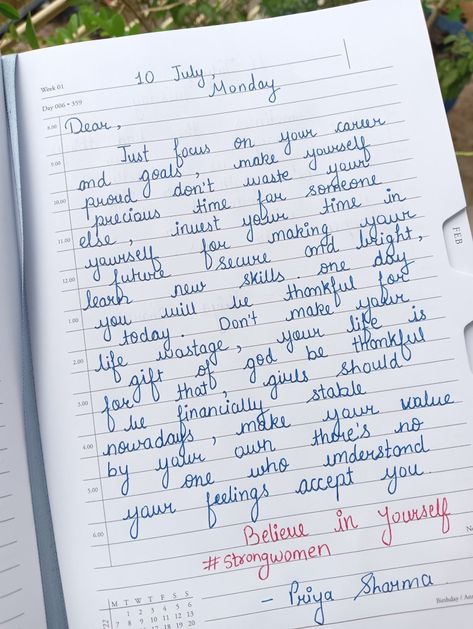 Week 01
10 July,
Monday
Day 006 • 359
8.00
Dear,
Just focus on your career
9.00
and goals, make yourself
proud don't waste your
10.00
precious time for someone
else, invest your time in
11.00
yourself for making your
future secure and bright,
12.00
learn new skills. one day
you will be thankful for
1.00
today. Don't make your
life wastage, your life is
2.00
gift of god be thankful
for that, girls should
3.00
be financially stable
nowadays, make your value
4.00
by your own there's no
one who understand
5.00
your feelings accept you.
6.00
Believe in yourself
#strongwomen
- Priya Sharma
FEB
M T W T F S S
1 2 3 4 5 6
7 8 9 10 11 12 13
Birthday /